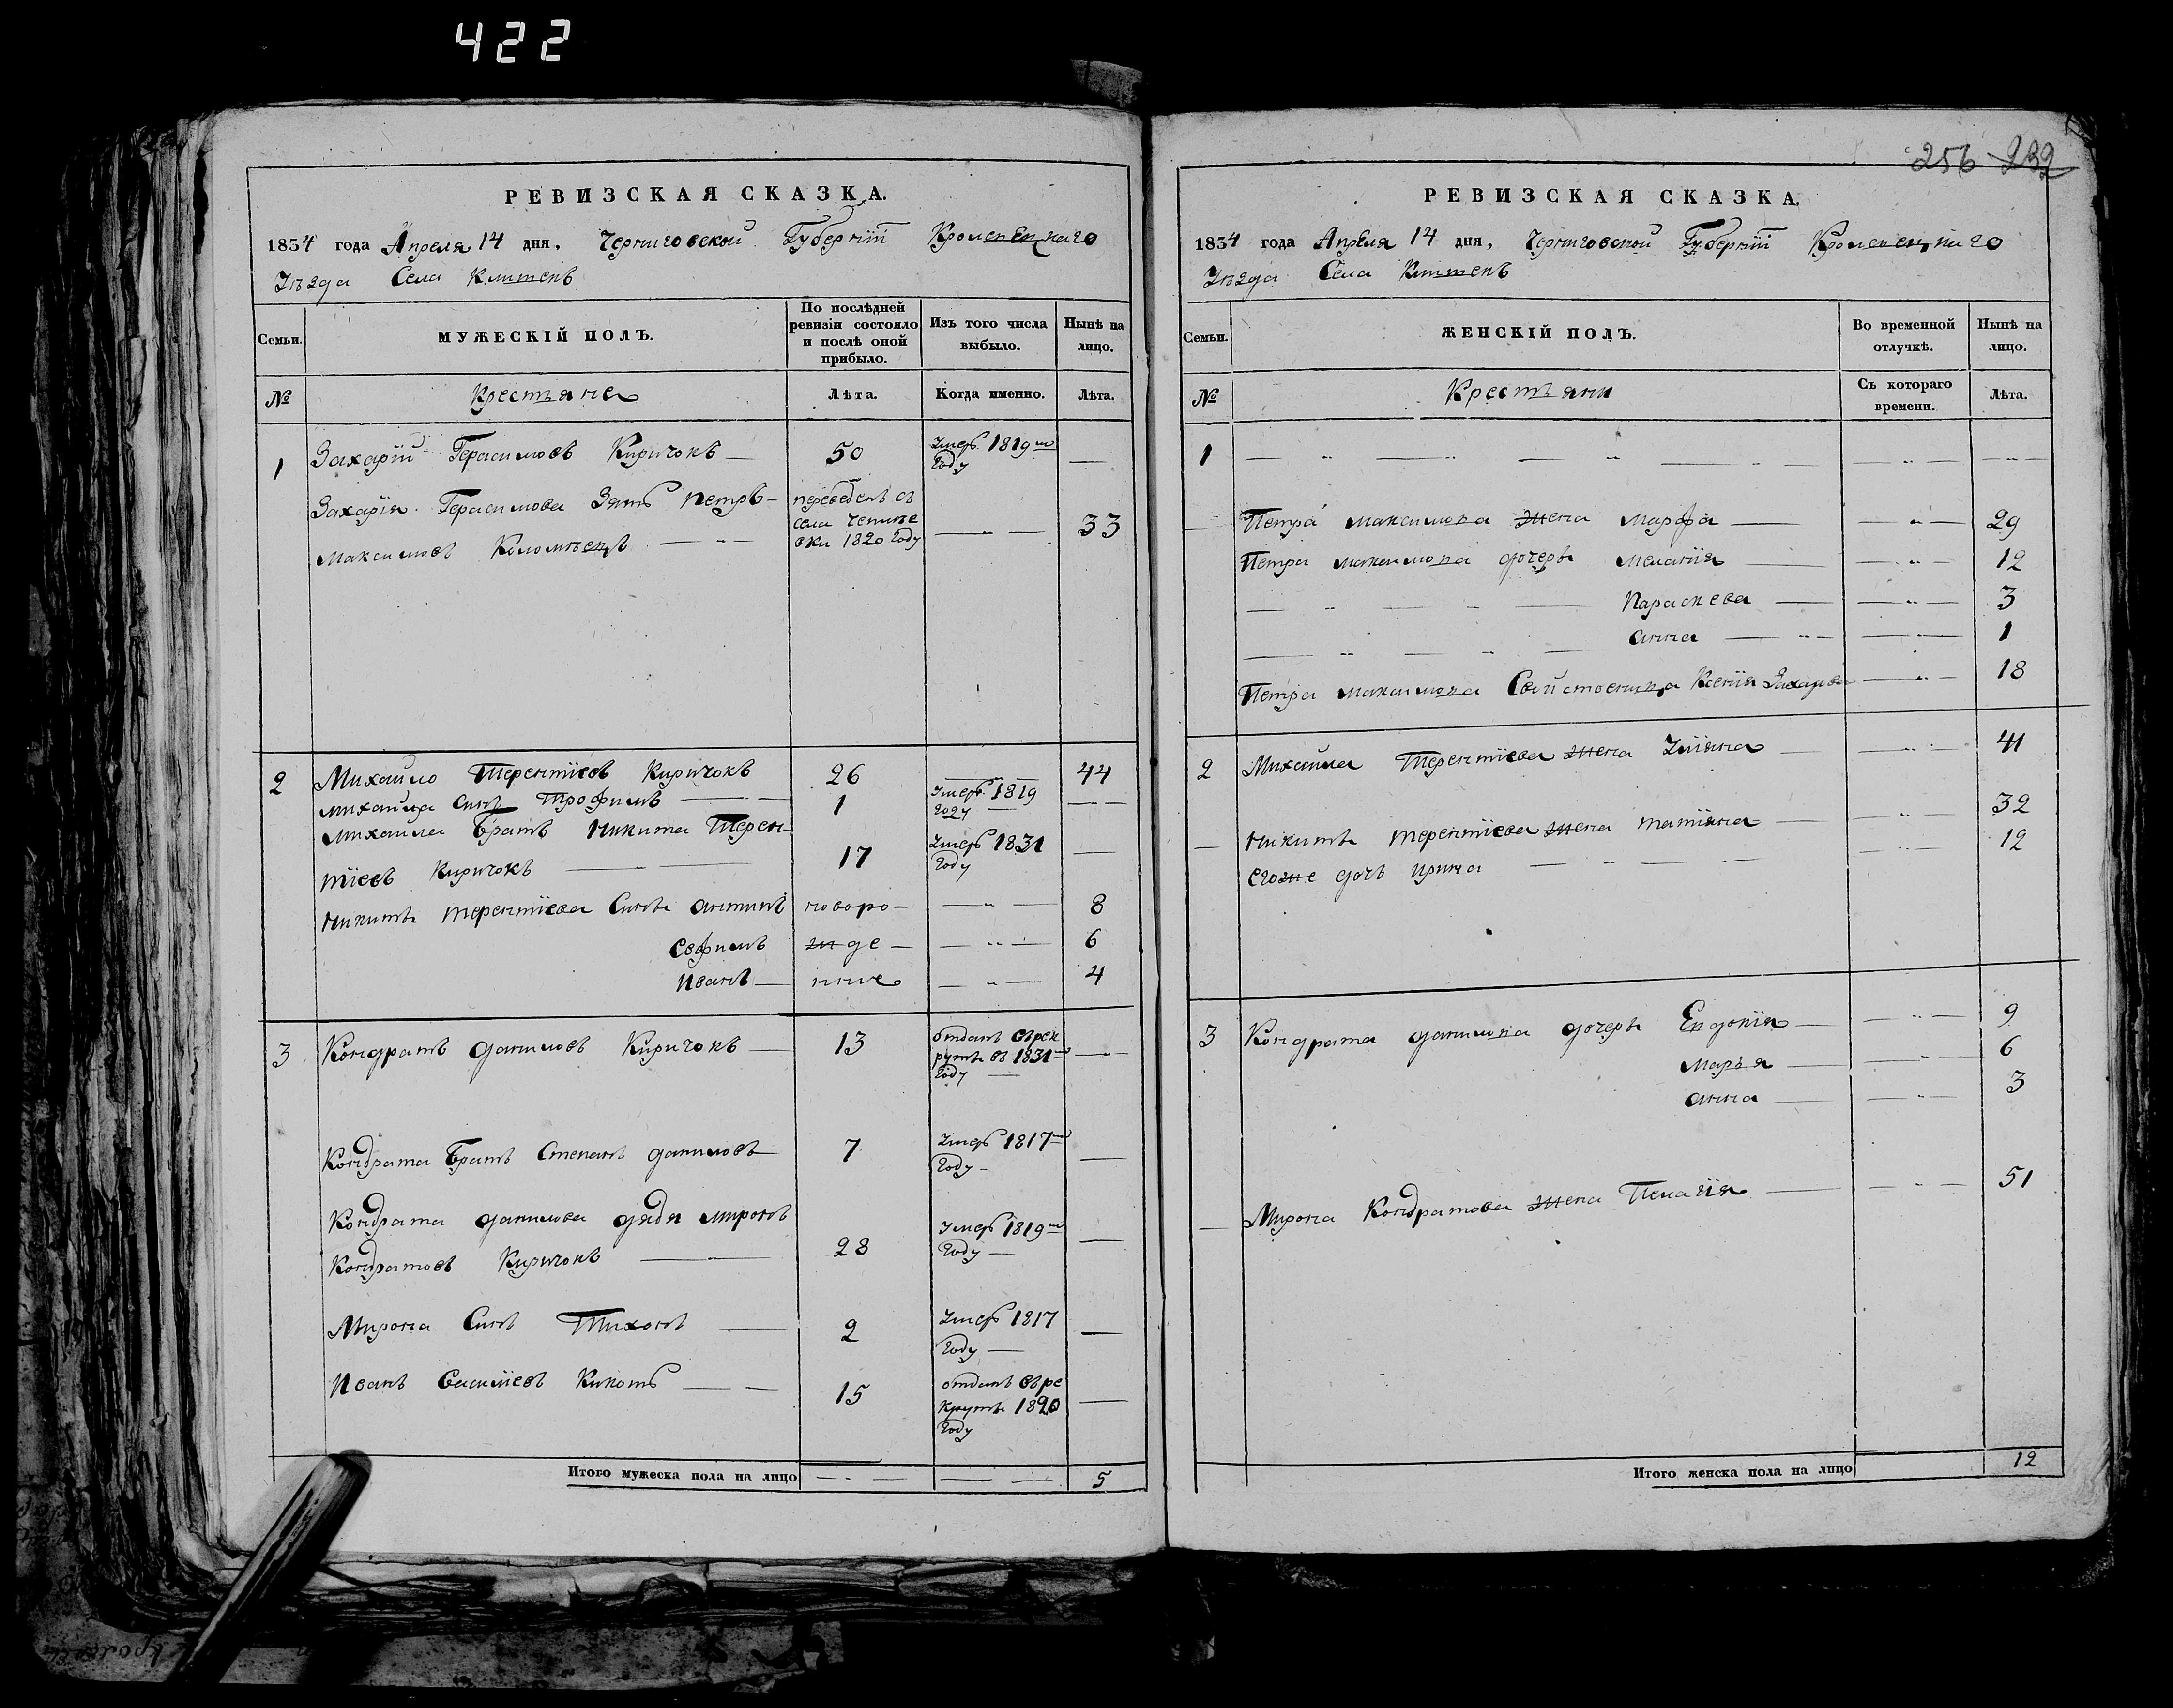 422
РЕВИЗСКАЯ СКАЗКА.
1834 года Апреля 14 дня, Черниговской Губернїи Кролевецкаго
Уѣзда Села Клишекъ
Семьи.
МУЖЕСКІЙ ПОЛЪ.
По послѣдней ревизіи состояло и послѣ оной прибыло.
Изъ того числа выбыло.
Нынѣ на лицо.
№ Крестъяне Лѣта. Когда именно. Лѣта.
1 Захарїй Герасимовъ Киричокъ — 50 Умеръ 1819го Году —
Захарїя Герасимова Зять Петръ — переведенъ съ
Максимовъ Коломѣецъ — села
вки 1820 Году — 33
2 Михайло Терентїевъ Киричокъ 26 44
Михайла Синъ Трофимъ — 1 Умеръ 1819 Году —
Михайла Братъ Никита Терен-
тїевъ Киричокъ — 17 Умеръ 1831 Году —
Никиты Терентїева Сины Антипъ новоро- — 8
Евфимъ жде- — 6
Иванъ — нние — 4
3 Кондратъ Даниловъ Киричокъ — 13 отданъ врек
руты въ 1831м Году —
Кондрата Братъ Степанъ Даниловъ 7 Умеръ 1817го Году —
Кондрата Данилова дядя Миронъ
Кондратовъ Киричокъ — 28 Умеръ 1819го Году —
Мирона Синъ Тихонъ — 2 Умеръ 1817 Году —
Иванъ Василїевъ Кикоть — 15 отданъ вре
круты 1820 Году —
Итого мужеска пола на лицо — — 5
256 232
РЕВИЗСКАЯ СКАЗКА.
1834 года Апреля 14 дня, Черниговской Губернїи Кролевецкаго
Уѣзда Села Клишекъ
Семьи.
ЖЕНСКІЙ ПОЛЪ.
Во временной отлучкѣ.
Нынѣ на лицо.
№ Крестъяни Съ котораго времени. Лѣта.
1 — — —
— Петра Максимова жена Марфа — 29
Петра Максимова дочеры Меланїя — 12
Параскева — 3
Анна — 1
Петра Максимова Свойственица Ксенїя Захарова — 18
2 Михайла Терентїева жена Улїяна — 41
— Никиты Терентїева жена Татїяна — 32
Егоже дочь Ирина — 12
3 Кондрата Данилова дочеры Евдокїя — 9
Марья — 6
Анна — 3
— Мирона Кондратова жена Пелагїя — 51
Итого женска пола на лицо 12